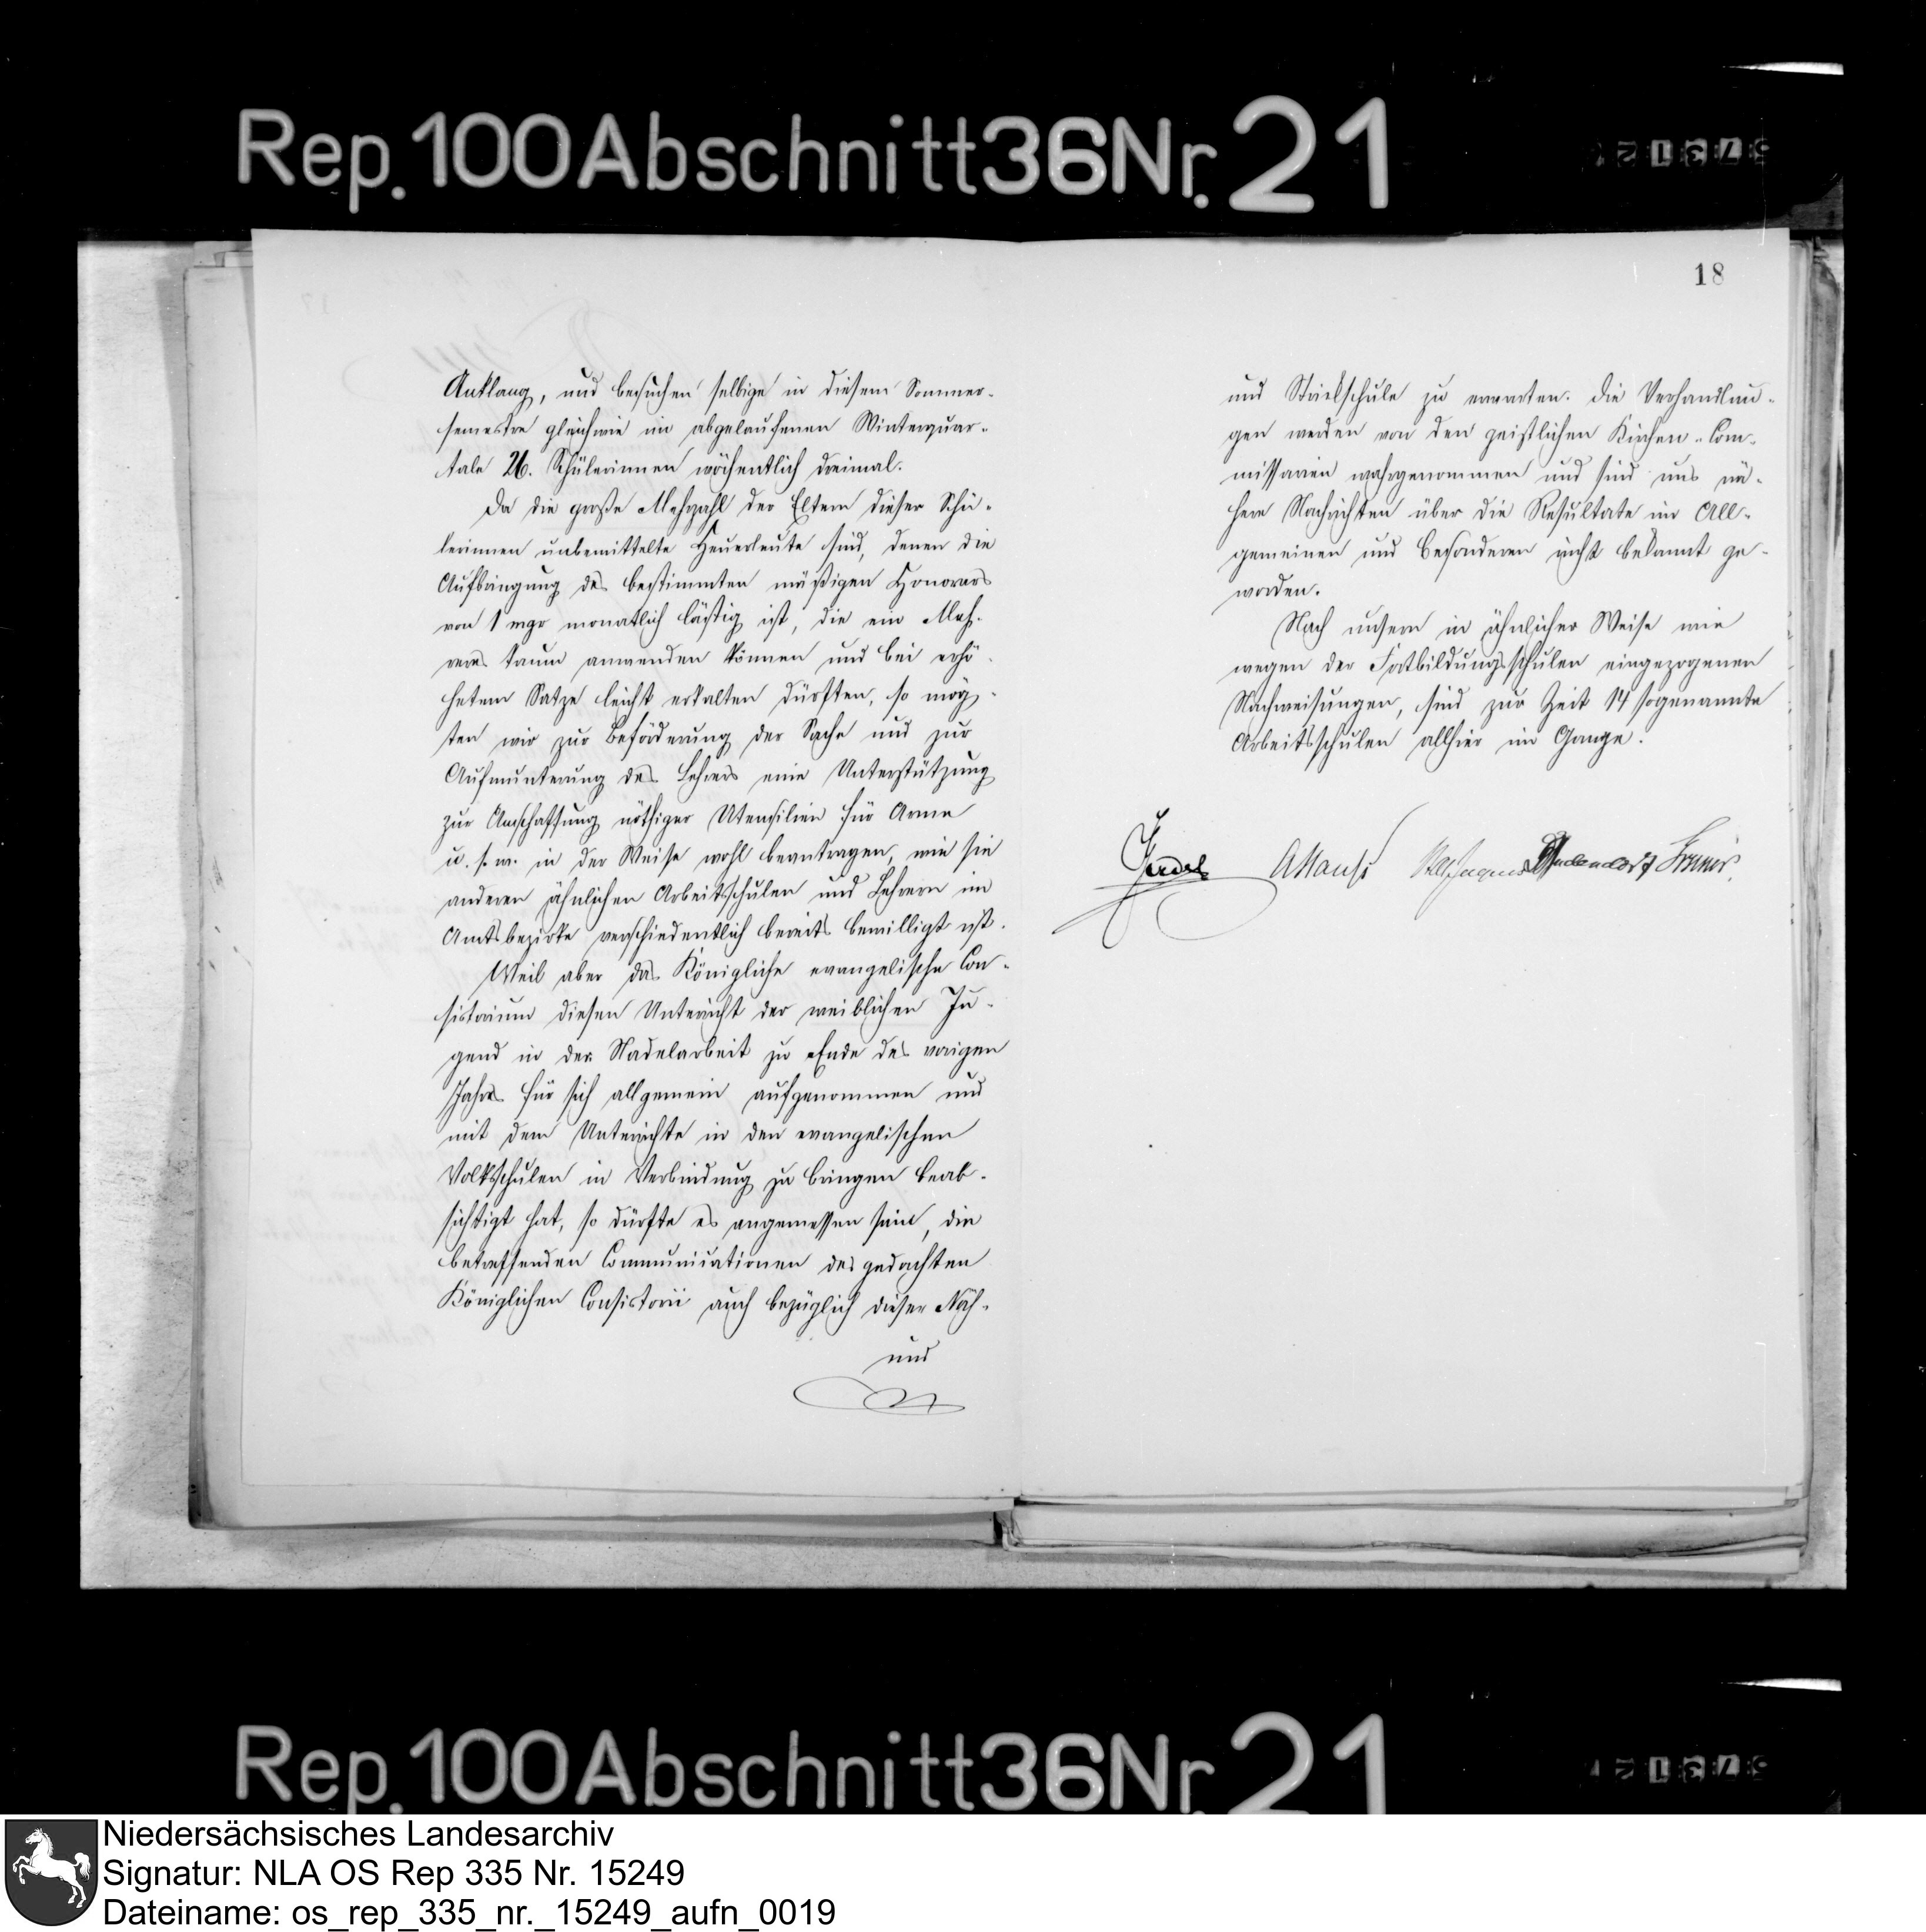 Rep. 100 Abschnitt 36 Nr. 21
18
Anklang, und besuchen selbige in diesem Sommer-
semestre gleichwie im abgelaufenen Winterquar-
tale 26. Schülerinnen wöchentlich dreimal.
Da die große Mehrzahl der Eltern dieser Schü-
lerinnen unbemittelte Heuerleute sind, denen die
Aufbringung des bestimmten mäßigen Honorars
von 1 mgr monatlich lästig ist, die ein Meh-
reres kaum anwenden können und bei erhö-
hetem Satze leicht erkalten dürften, so mög-
ten wir zur Beförderung der Sache und zur
Aufmunterung des Lehrers eine Unterstützung
zur Anschaffung nöthiger Utensilien für Arme
u. s. w. in der Weise wohl beantragen, wie sie
anderen ähnlichen Arbeitsschulen und Lehrern im
Amtsbezirke verschiedentlich bereits bewilligt ist.
Weil aber das Königliche evangelische Con-
sistorium diesen Unterricht der weiblichen Ju-
gend in der Nadelarbeit zu Ende des vorigen
Jahrs für sich allgemein aufgenommen und
mit dem Unterrichte in den evangelischen
Volksschulen in Verbindung zu bringen beab-
sichtigt hat, so dürfte es angemessen sein, die
betreffenden Communicationen des gedachten
Königlichen Consistorii auch bezüglich dieser Näh-
und
und Strickschule zu erwarten. Die Verhandlun-
gen werden von den geistlichen Kirchen-Com-
missarien wahrgenommen und sind uns nä-
here Nachrichten über die Resultate im All-
gemeinen und Besonderen nicht bekannt ge-
worden.
Nach unsern in ähnlicher Weise wie
wegen der Fortbildungsschulen eingezogenen
Nachweisungen, sind zur Zeit 14 sogenannte
Arbeitsschulen allhier im Gange.
Rep. 100 Abschnitt 36 Nr. 21
Niedersächsisches Landesarchiv
Signatur: NLA OS Rep 335 Nr. 15249
Dateiname: os_rep_335_nr._15249_aufn_0019